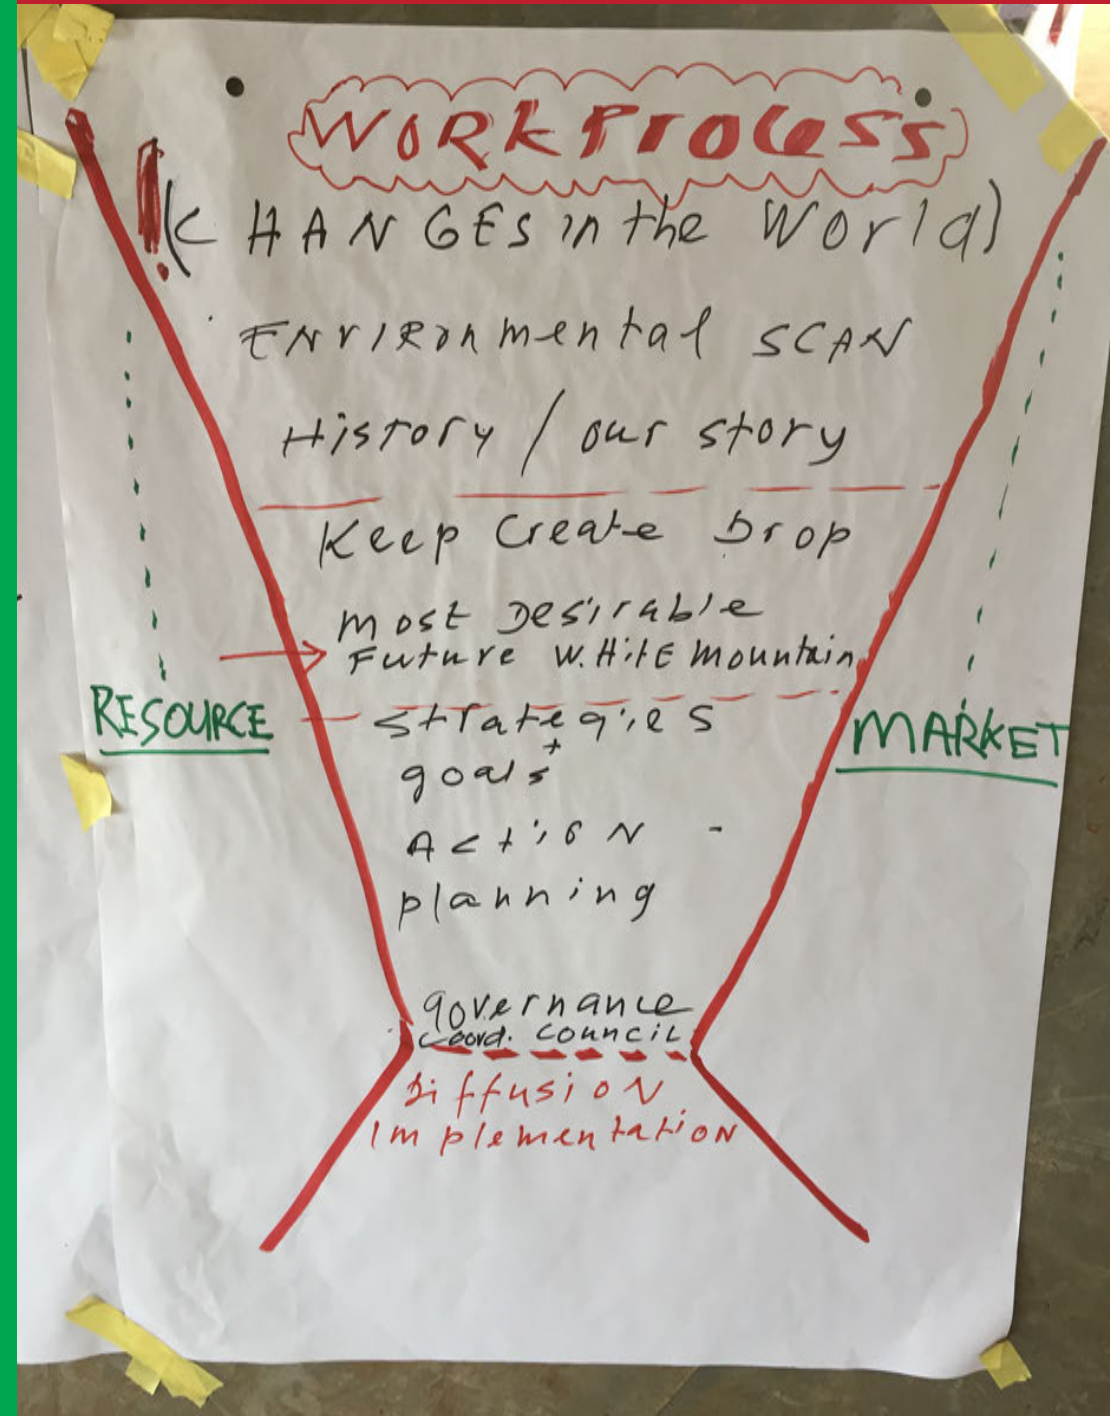 WORKPROCESS
! (CHANGES in the World)
ENVIRONmental SCAN
History / our story
Keep Create Drop
most Desirable
Future W.HitE mountain
RESOURCE
strategies
MARKET
+
goals
ActiON -
planning
governance
Coord. COUNCIL
DiffusiON
ImplementatiON